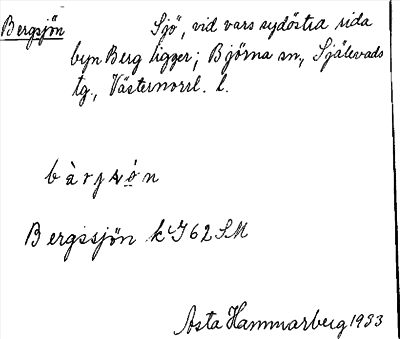 Bergsjön Sjö, vid vars sydöstra sida
byn Berg ligger; Björna sn, Själevads
tg., Västernorrl. l.
Bergssjön k J62SM
Asta Hammarberg 1933